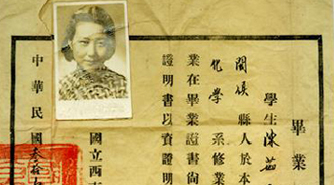 畢業
學生陳茹
閩侯縣人於本
化學系修業
業在畢業證書尚
證明書以資證明
國立西
中華民國叁拾